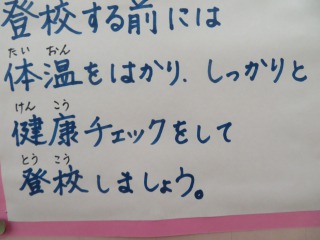 登校する前には
たい おん
体温をはかり、しっかりと
けん こう
健康チェックをして
とう こう
登校しましょう。